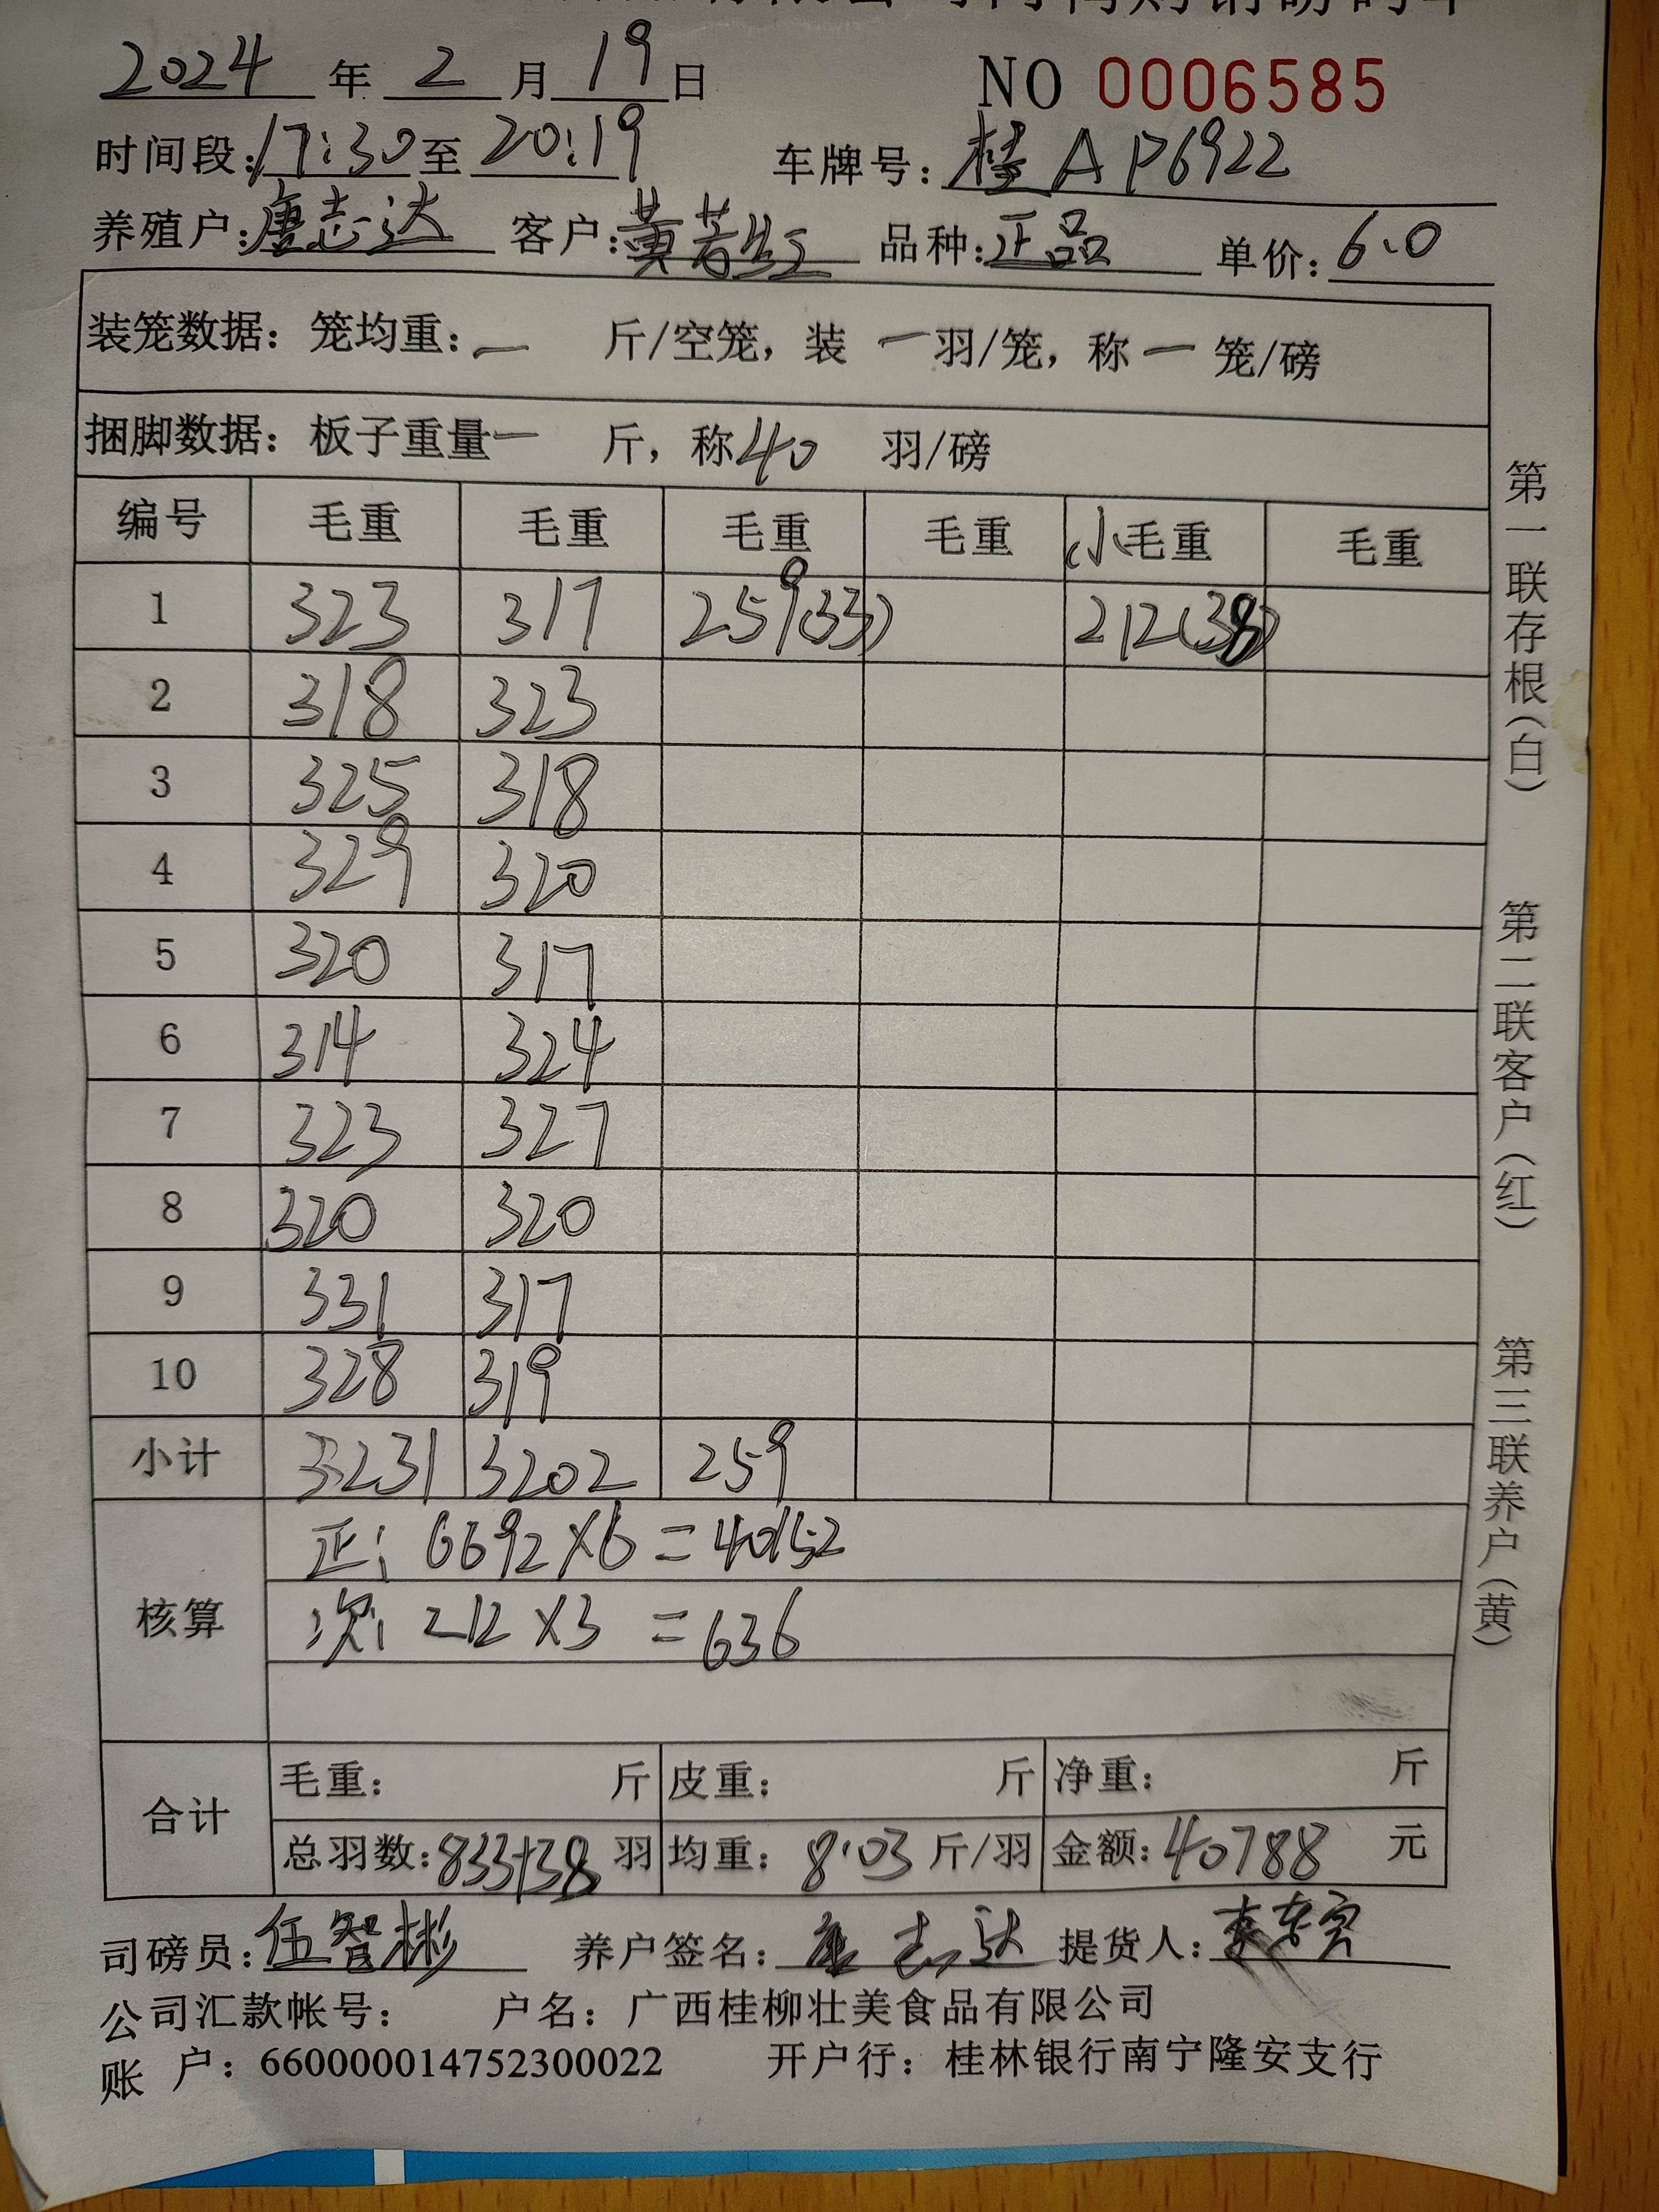 2024 年 2 月 19 日 NO 0006585
时间段: 17:30 至 20:19 车牌号: 桂AP6922
养殖户: 唐志达 客户: 黄若红 品种: 正品 单价: 6.0
装笼数据: 笼均重: 一 斤/空笼, 装 一 羽/笼, 称 一 笼/磅
捆脚数据: 板子重量 一 斤, 称 40 羽/磅
编号 毛重 毛重 毛重 毛重 小毛重 毛重
1 323 317 259(33) 212(38)
2 318 323
3 325 318
4 329 320
5 320 317
6 314 324
7 323 327
8 320 320
9 331 317
10 328 319
小计 3231 3202 259
核算 正: 6692×6=40152
次: 212×3=636
合计 毛重: 斤 皮重: 斤 净重: 斤
总羽数: 833+38 羽 均重: 8.03 斤/羽 金额: 40788 元
司磅员: 伍智彬 养户签名: 唐志达 提货人:
公司汇款帐号: 户名: 广西桂柳壮美食品有限公司
账 户: 660000014752300022 开户行: 桂林银行南宁隆安支行
第一联存根(白) 第二联客户(红) 第三联养户(黄)